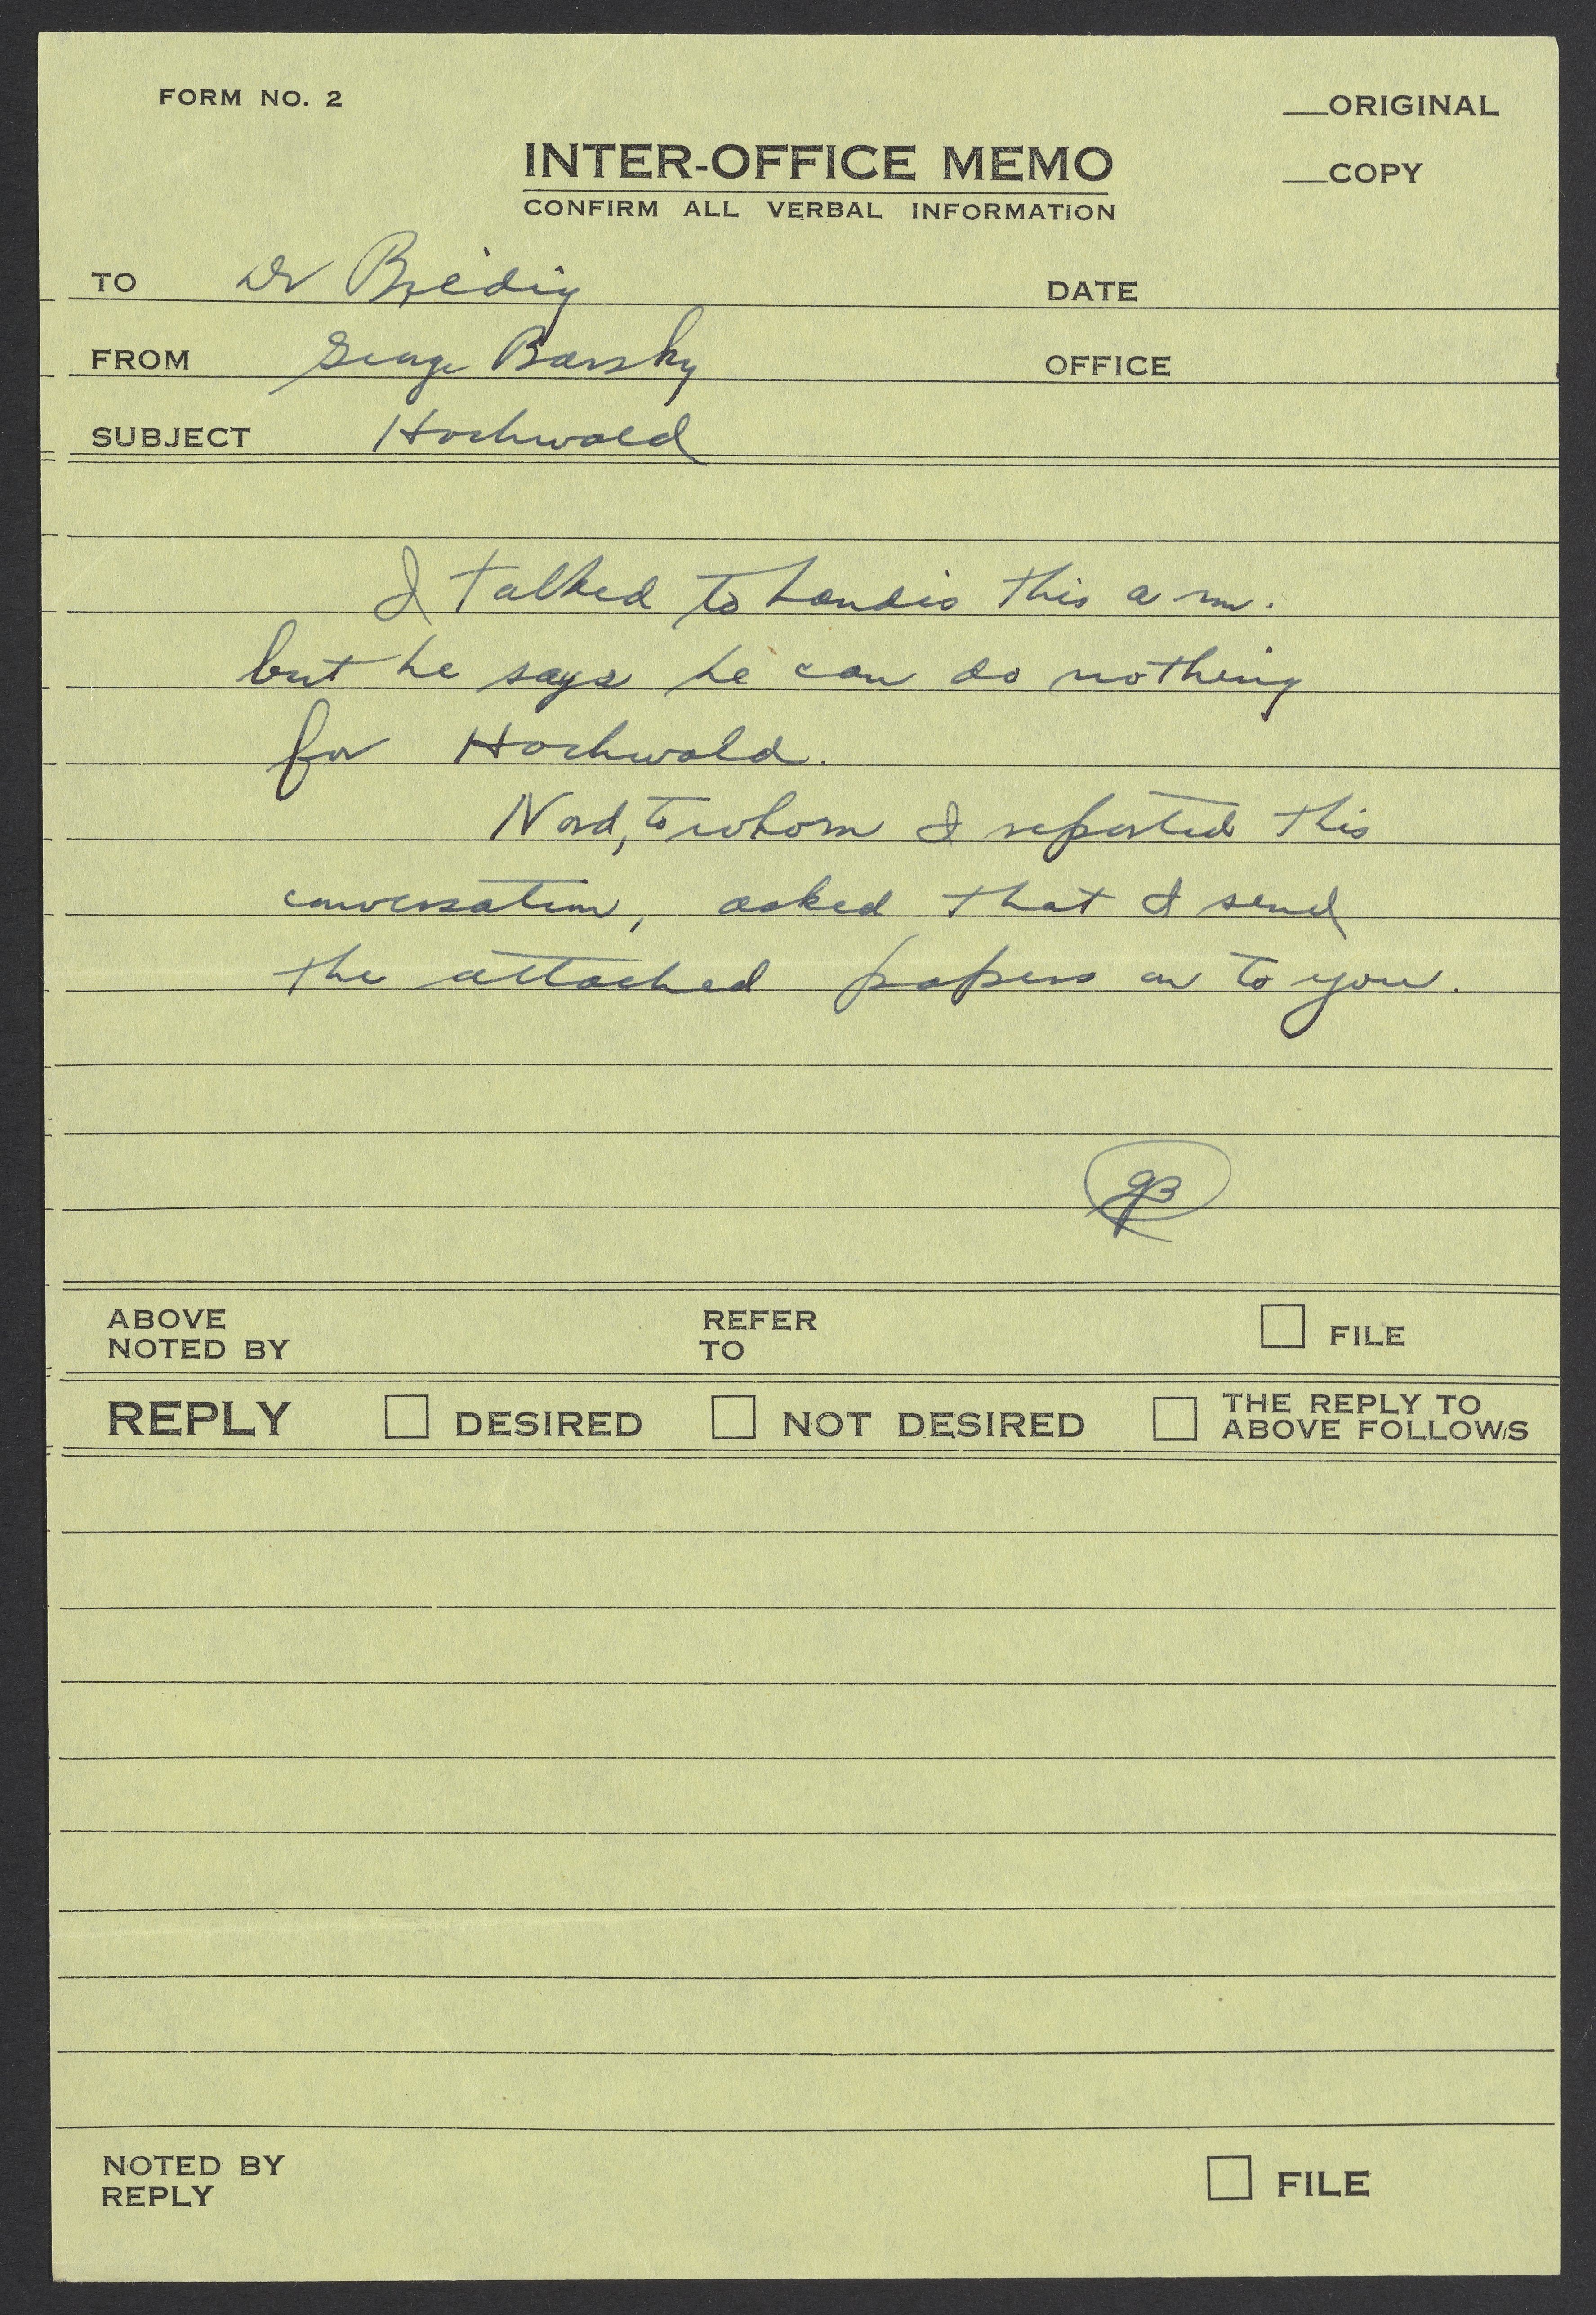 FORM NO. 2
__ORIGINAL
INTER-OFFICE MEMO
__COPY
CONFIRM ALL VERBAL INFORMATION
TO Dr Bredig DATE
FROM George Barsky OFFICE
SUBJECT Hochwald
I talked to Landis this a m.
but he says he can do nothing
for Hochwald.
Nord, to whom I reported this
conversation, asked that I send
the attached papers on to you.
GB
ABOVE NOTED BY
REFER TO
FILE
REPLY DESIRED NOT DESIRED THE REPLY TO
ABOVE FOLLOWS
NOTED BY
REPLY
FILE